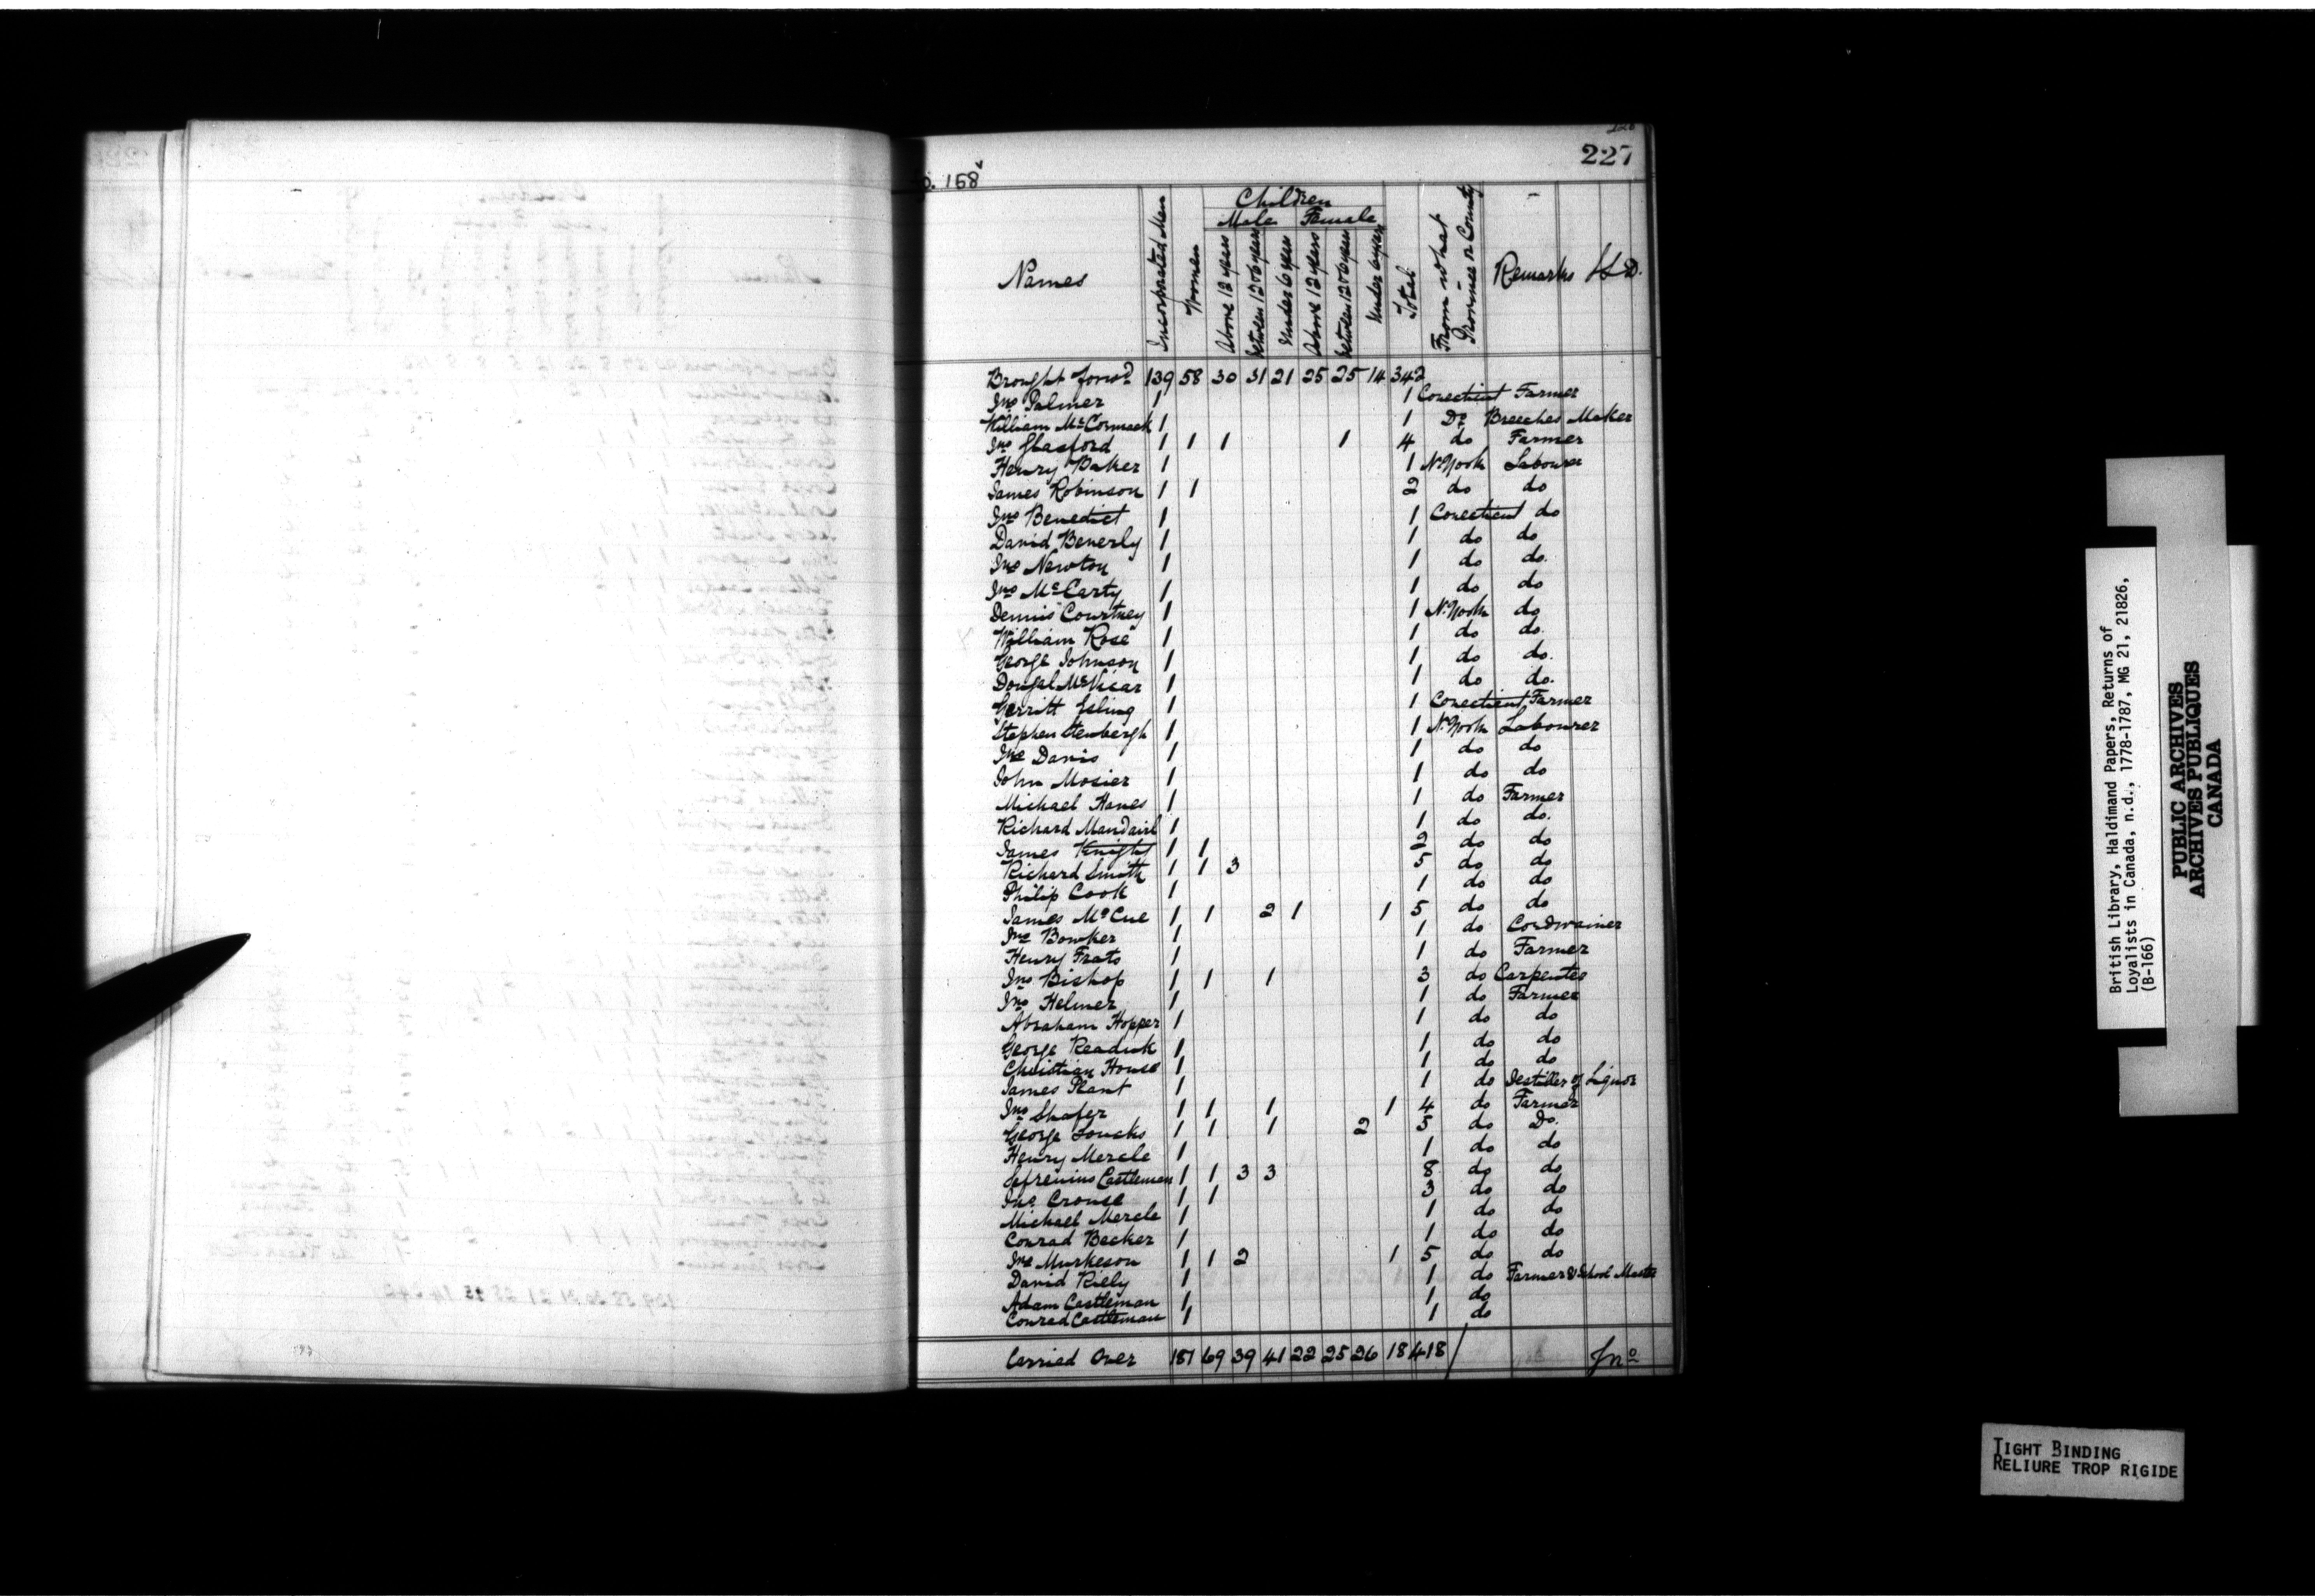 227
p. 158
Children
Male Female
Names Incorporated Men Women Above 12 years between 12 & 6 years Under 6 years Above 12 years between 12 & 6 years Under 6 years Total From what Province or County Remarks £ S D.
Brought forwd 139 58 30 31 21 25 25 14 342
Jno Palmer 1 1 Conecticut Farmer
William McCormack 1 1 Do Breeches Maker
Jno Glasford 1 1 1 1 4 do Farmer
Henry Baker 1 1 N. York Labourer
James Robinson 1 1 2 do do
Jno Benedict 1 1 Conecticut do
David Beverly 1 1 do do
Jno Newton 1 1 do do.
Jno McCarty 1 1 do do
Dennis Courtney 1 1 N. York do
William Rose 1 1 do do.
George Johnson 1 1 do do.
Dougal McVicar 1 1 do do.
Gerritt 1 1 Conecticut Farmer
Stephen Stenbergh 1 1 N. York Labourer
Jno Davis 1 1 do do
John Mosier 1 1 do do
Michael Hanes 1 1 do Farmer
Richard Mandairl 1 1 do do.
James Knight 1 1 2 do do
Richard Smith 1 1 3 5 do do
Philip Cook 1 1 do do
James McCue 1 1 2 1 1 5 do do
Jno Bowker 1 1 do Cordwainer
Henry Frats 1 1 do Farmer
Jno Bishop 1 1 1 3 do Carpenter
Jno Helmer 1 1 do Farmer
Abraham Hopper 1 1 do do
George Readick 1 1 do do
Christian House 1 1 do do
James Plant 1 1 do Destiller of Liquor
Jno Shafer 1 1 1 1 4 do Farmer
George Loucks 1 1 1 2 5 do Do.
Henry Mercle 1 1 do do
Sefrenius Castleman 1 1 3 3 8 do do
Jno Crouse 1 1 3 do do
Michael Mercle 1 1 do do
Conrad Becker 1 1 do do
Jno Murkeson 1 1 2 1 5 do do
David Riely 1 1 do Farmer & School Master
Adam Castleman 1 1 do
Conrad Castleman 1 1 do
Carried Over 187 69 39 41 22 25 26 18 418 Jno
British Library, Haldimand Papers, Returns of
Loyalists in Canada, n.d., 1778-1787, MG 21, 21826,
(B-166)
PUBLIC ARCHIVES
ARCHIVES PUBLIQUES
CANADA
TIGHT BINDING
RELIURE TROP RIGIDE